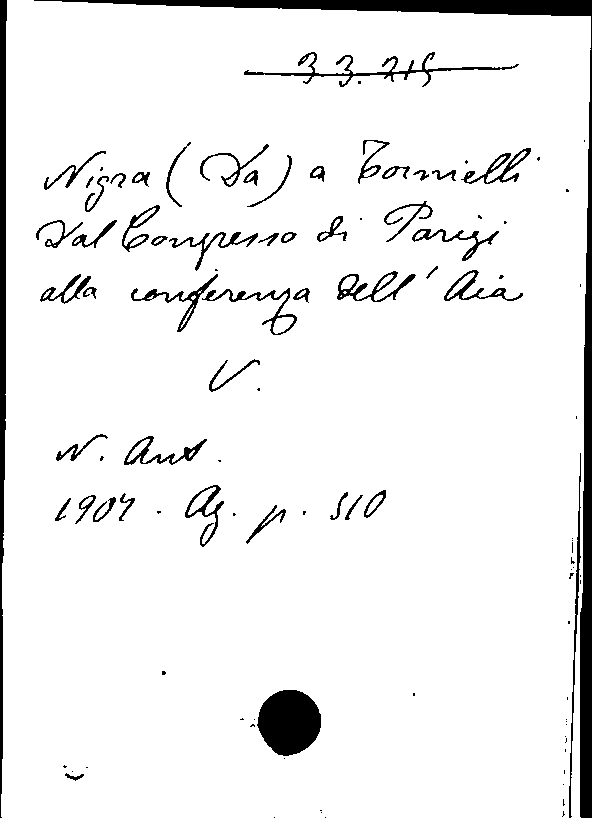 3.3.215
Nigra (Da) a Tornielli
Dal Congresso di Parigi
alla conferenza dell' Aia
V.
N. Ant.
1907. Ag. p. 510